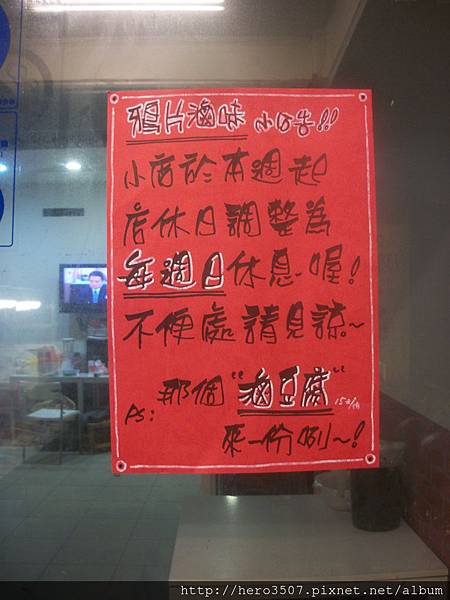 鴉片滷味 小公告!!
小店於本週起
店休日調整為
每週日休息喔!
不便處請見諒~
PS: 那個"滷豆腐"
來一份咧~!
http://hero3507.pixnet.net/album